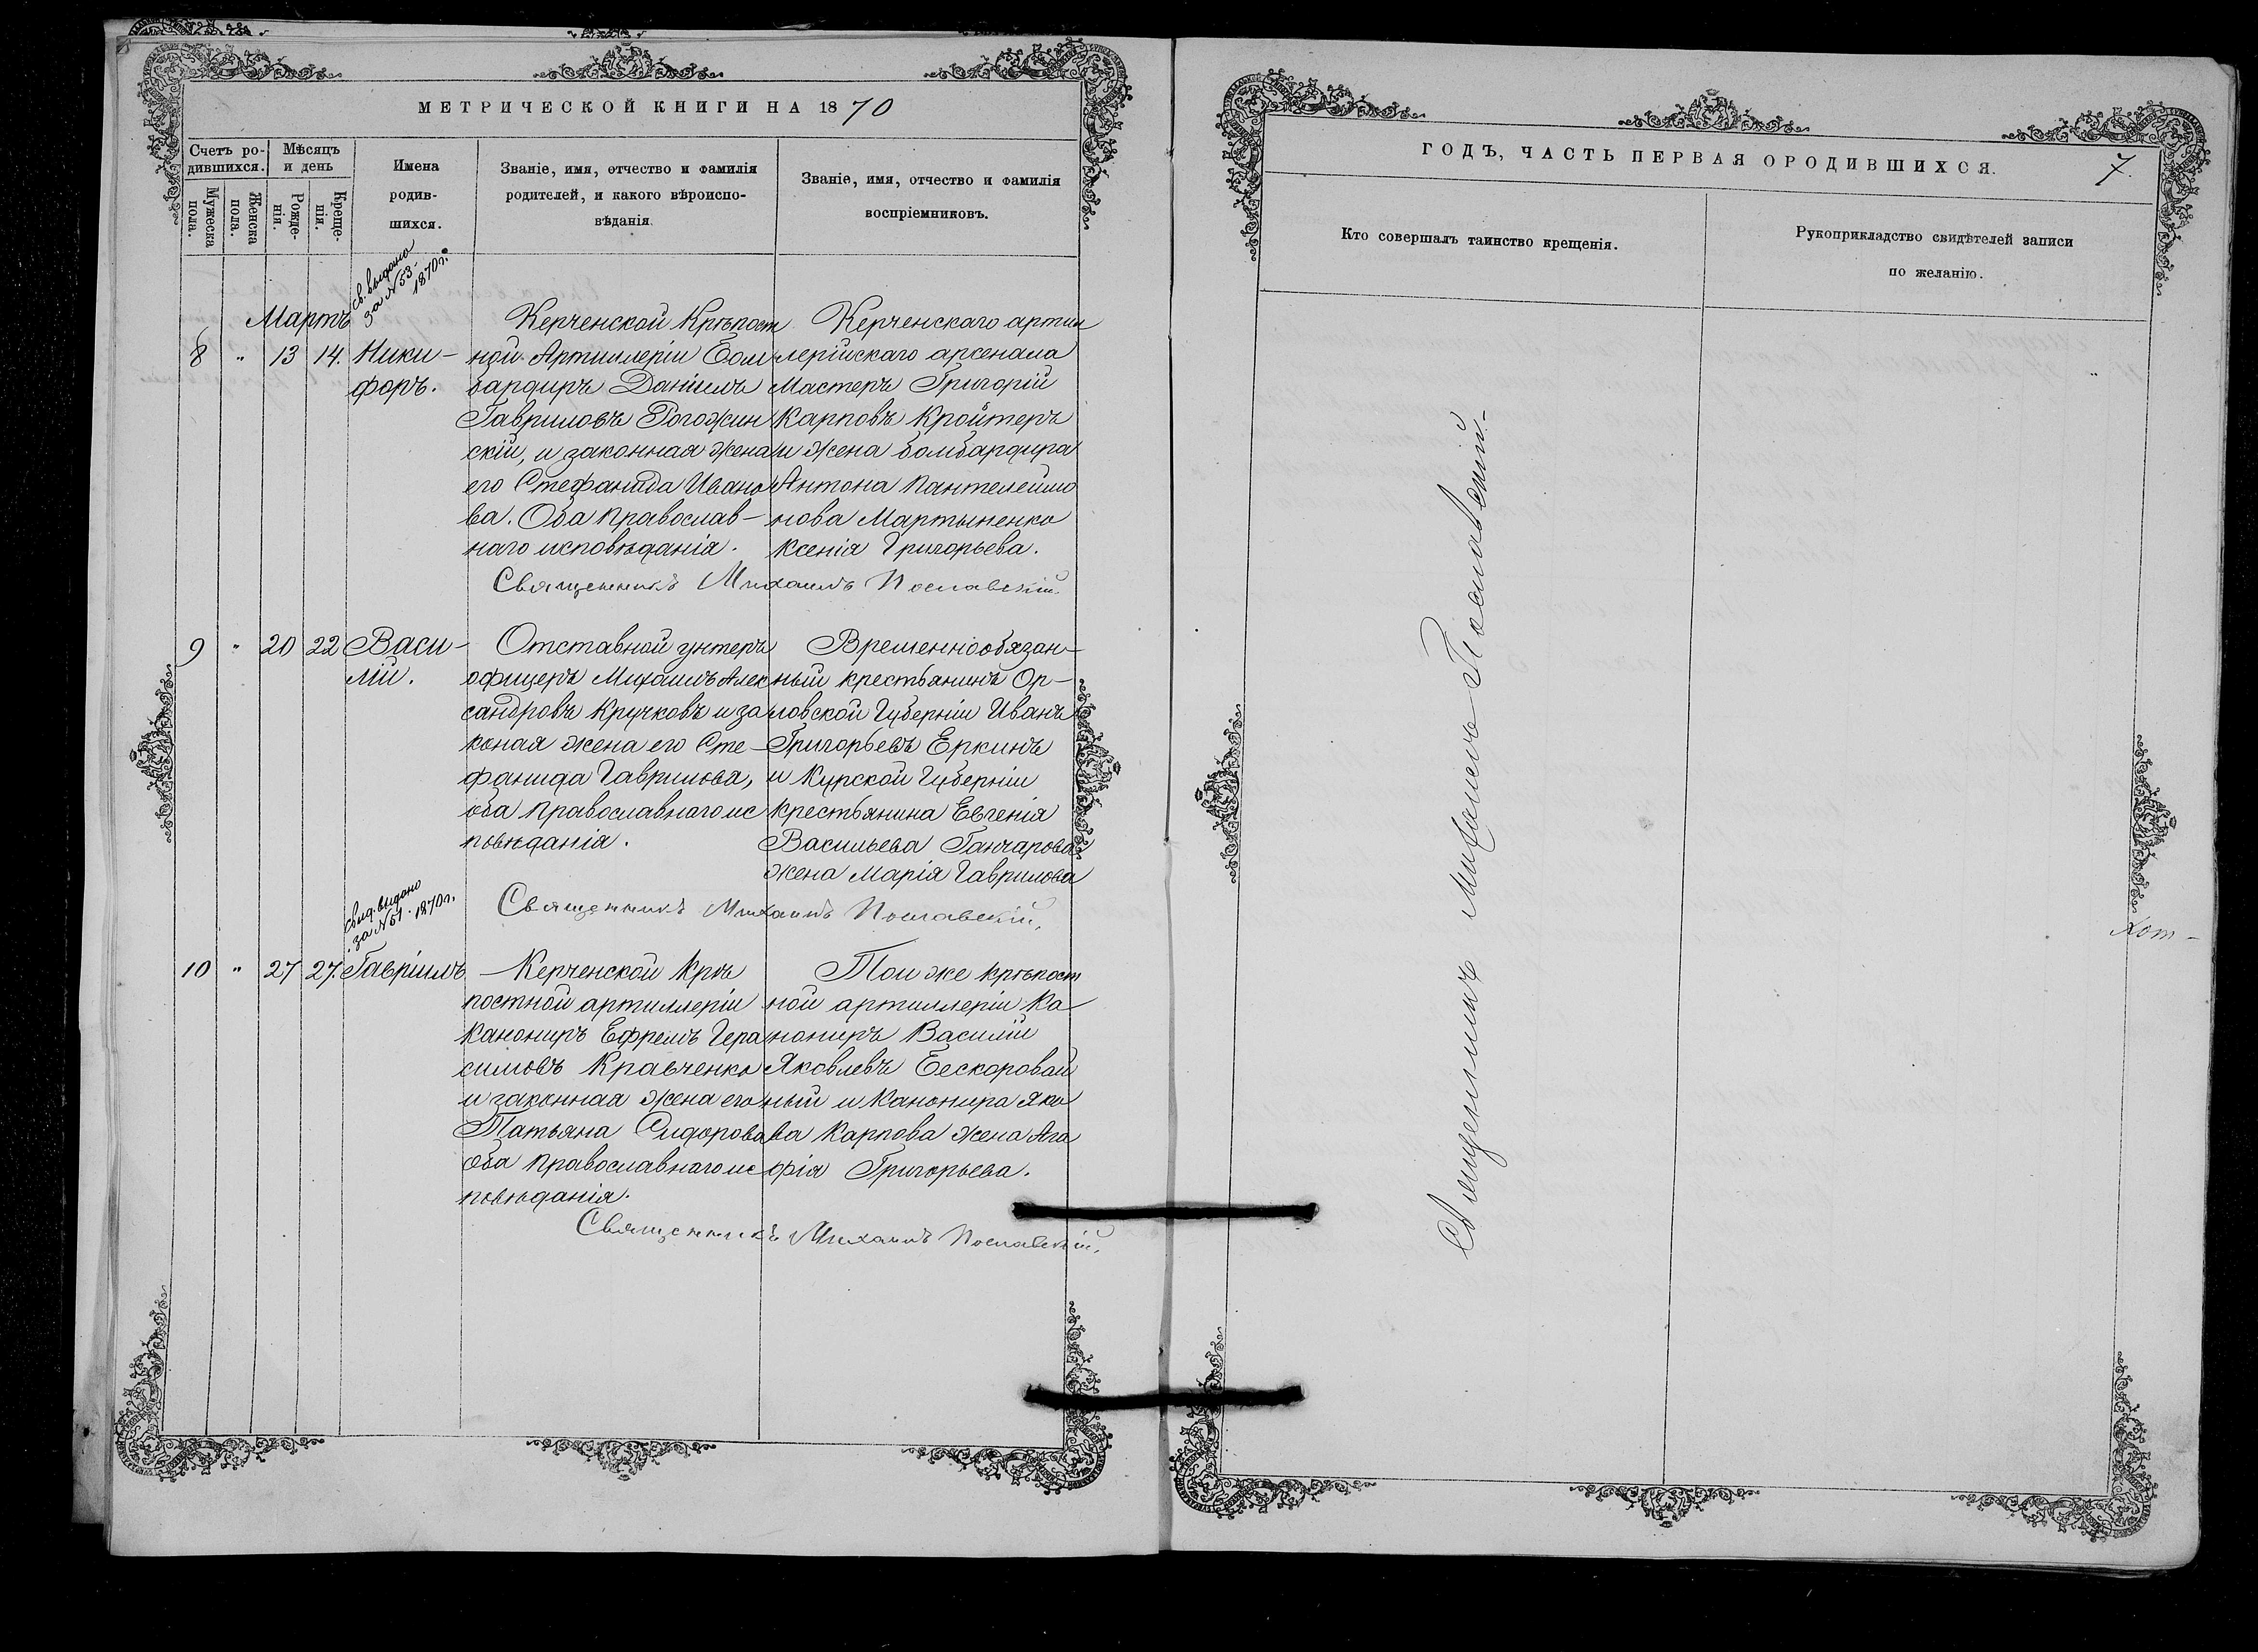 МЕТРИЧЕСКОЙ КНИГИ НА 1870
Счетъ ро-
дившихся.
Мѣсяцъ
и день
Мужеска
пола.
Женска
пола.
Рожде-
нія.
Креще-
нія.
Имена
родив-
шихся.
Званіе, имя, отчество и фамилія
родителей, и какого вѣроиспо-
вѣданія.
Званіе, имя, отчество и фамилія
воспріемниковъ.
св. выдано
за №53-
1870 г.
Мартъ
8 " 13 14. Ники-
форъ.
Керченской Крѣпост
ной Артиллеріи Бом
бардиръ Даніилъ
Гавриловъ Рогожин
скій, и законная жена
его Стефанида Ивано
ва. Оба Православ-
наго исповѣданія.
Керченскаго артил
лерійскаго арсенала
Мастеръ Григорій
Карповъ Кройтеръ
и жена бомбардира
Антона Пантелеймо
нова Мартыненко
Ксенія Григорьева.
Священникъ Михаилъ Пославскій.
9 " 20 22 Васи-
лій.
Отставной унтеръ
офицеръ Михаилъ Алек
сандровъ Кручковъ и за
коная жена его Сте-
фанида Гаврилова,
оба Православнаго ис
повѣданія.
Временнообязан-
ный крестьянинъ Ор-
ловской Губерніи Иванъ
Григорьевъ Еркинъ
и Курской Губерніи
крестьянина Евгенія
Васильева Ганчарова
жена Марія Гаврилова
Священникъ Михаилъ Пославскій.
свид. выдано
за №51. 1870 г.
10 " 27 27. Гавріилъ
Керченской Крѣ
постной артиллеріи
Канониръ Ефремъ Гера
симовъ Кравченко
и законная жена его
Татьяна Сидорова
Оба Православнаго ис
повѣданія.
Той же крѣпост
ной артиллеріи Ка
нониръ Василій
Яковлевъ Бескоровай
ный и Канонира Яко
ва Карпова жена Ага
фія Григорьева.
Священникъ Михаилъ Пославскій.
ГОДЪ, ЧАСТЬ ПЕРВАЯ О РОДИВШИХСЯ.
7.
Кто совершалъ таинство крещенія.
Рукоприкладство свидѣтелей записи
по желанію.
Священникъ Михаилъ Пославскій.-